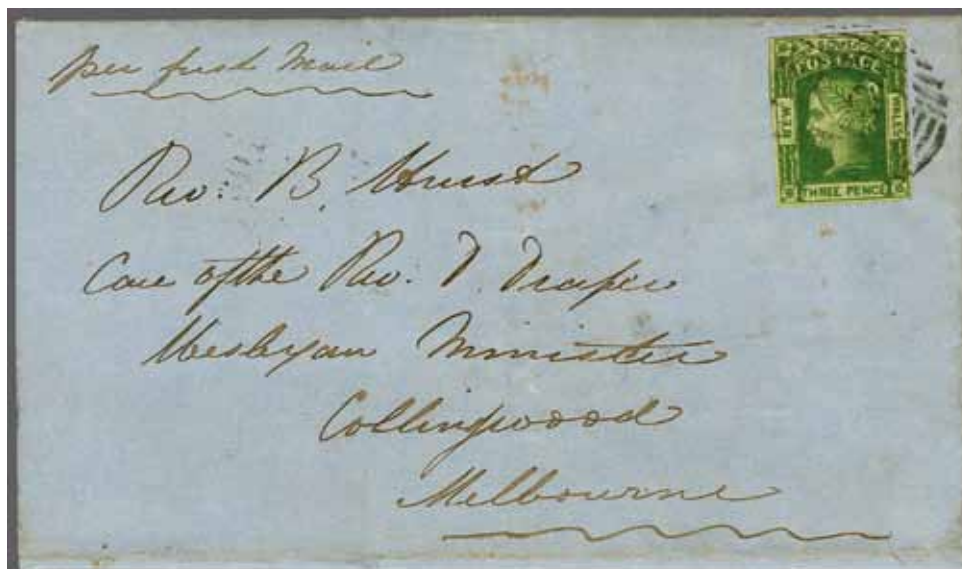 per first Mail
SOUTH
POSTAGE
NEW
WALES
THREE PENCE
Rev. B. Hurst
Care of the Rev. D. Draper
Wesleyan Minister
Collingwood
Melbourne